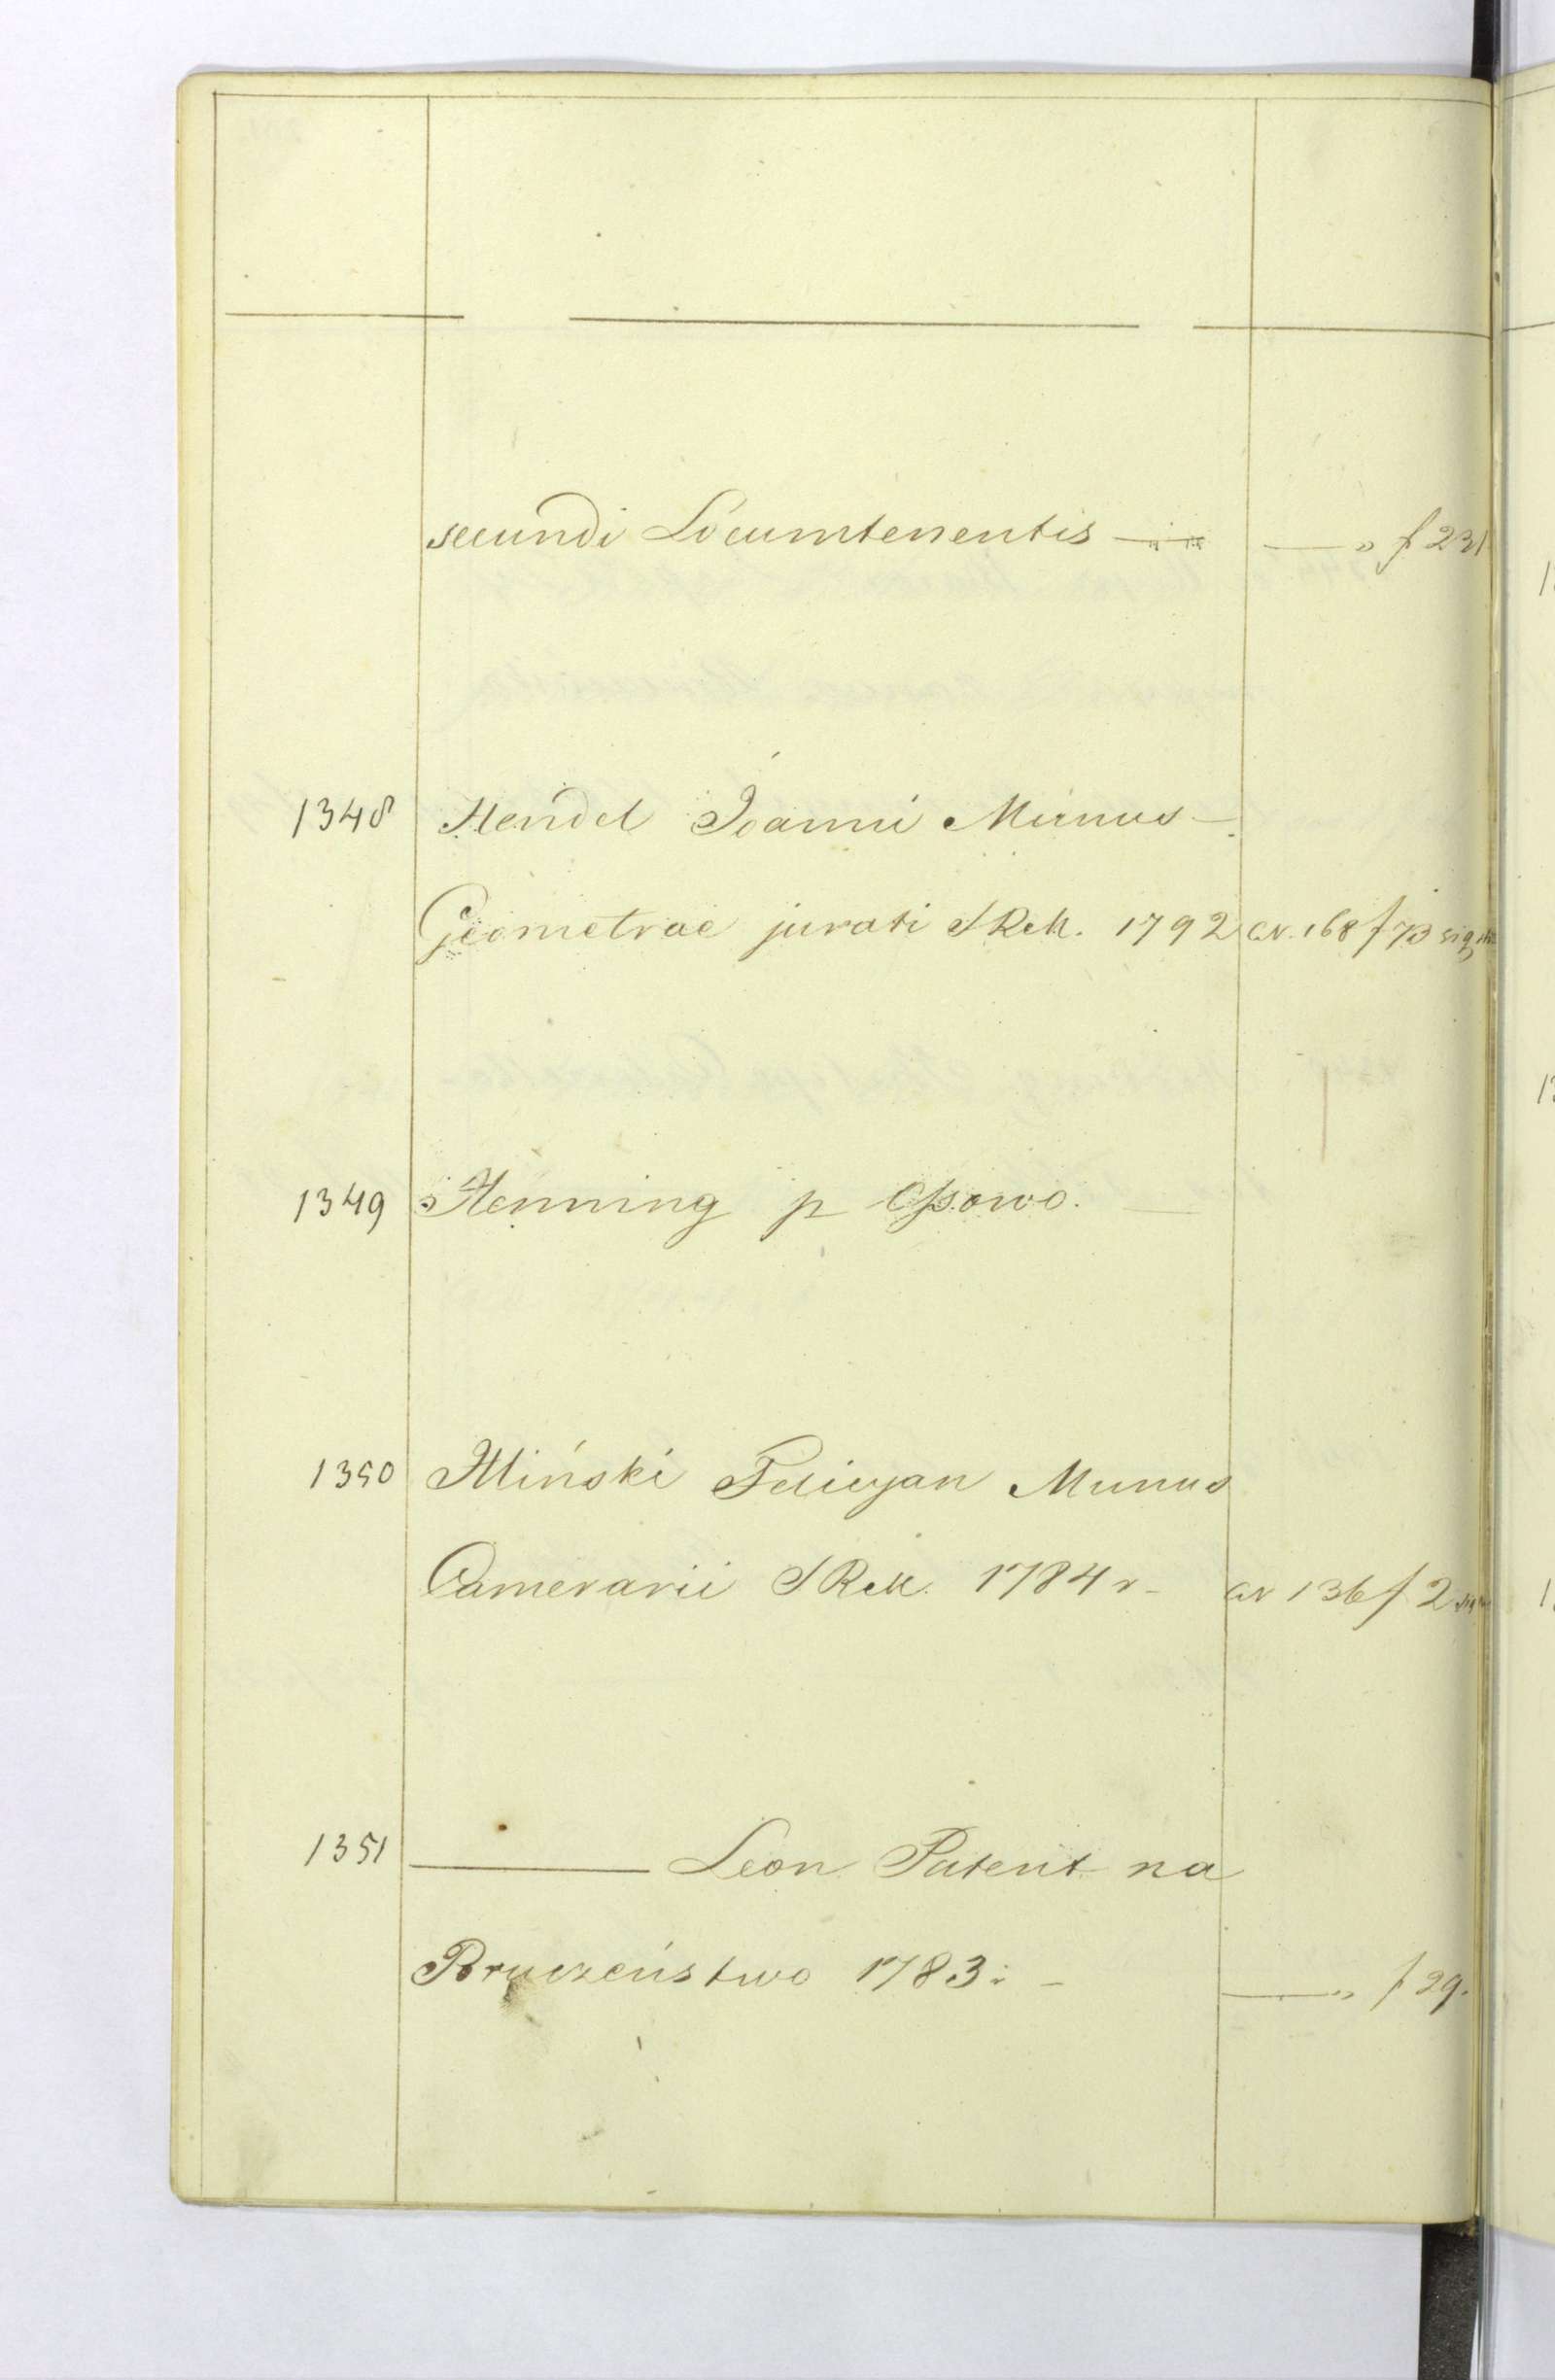 secundi Locumtenentis — — „ f 231
1348 Hendel Joanni Munus —
Geometrae jurati SRM. 1792 CN. 168 f 73 sig
1349 Henning p Ossowo. —
1350 Hliński Felicyan Munus
Camerarii SRM. 1784 r — CN 136 f 2
1351 ——— Leon Patent na
Bruczeństwo 1783 : — —— „ f 29.